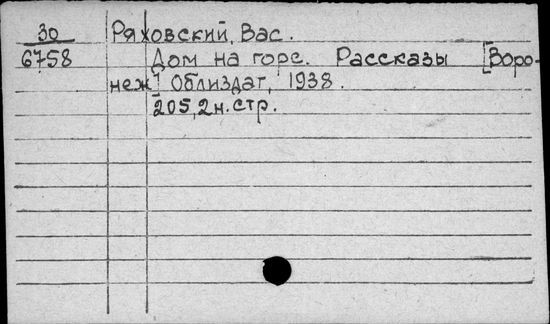 30 Ряховский, Вас.
6758 Дом на горе. Рассказы [Воро-
неж] Облиздат, 1938.
205, 2 н. стр.